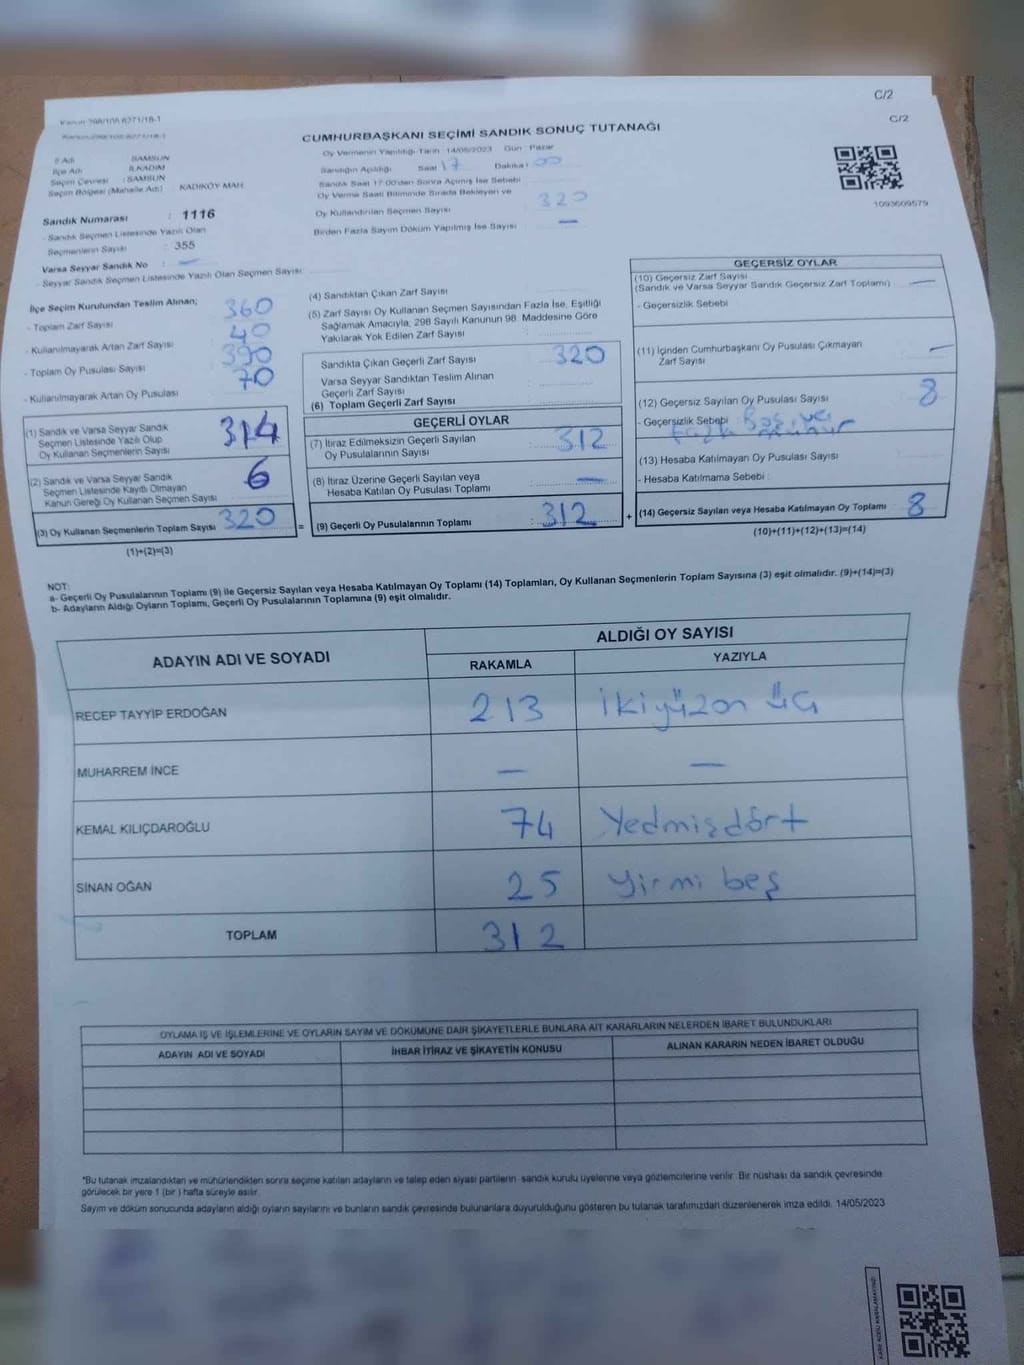 C/2
C/2
CUMHURBAŞKANI SEÇİMİ SANDIK SONUÇ TUTANAĞI
İl Adı : SAMSUN
İlçe Adı : İLKADIM
Seçim Çevresi : SAMSUN
Seçim Bölgesi (Mahalle Adı) : KADIKÖY MAH.
Oy Vermenin Yapıldığı Tarih : 14/05/2023 Gün : Pazar
Sandığın Açıldığı Saat 17 Dakika : 00
Sandık Saat 17:00'den Sonra Açılmış İse Sebebi
Oy Verme Saati Bitiminde Sırada Bekleyen ve
Oy Kullandırılan Seçmen Sayısı 320
Birden Fazla Sayım Döküm Yapılmış İse Sayısı : —
1093609579
Sandık Numarası : 1116
- Sandık Seçmen Listesinde Yazılı Olan
Seçmenlerin Sayısı : 355
Varsa Seyyar Sandık No : —
- Seyyar Sandık Seçmen Listesinde Yazılı Olan Seçmen Sayısı :
İlçe Seçim Kurulundan Teslim Alınan;
- Toplam Zarf Sayısı 360
- Kullanılmayarak Artan Zarf Sayısı : 40
- Toplam Oy Pusulası Sayısı 390
- Kullanılmayarak Artan Oy Pusulası 70
(1) Sandık ve Varsa Seyyar Sandık
Seçmen Listesinde Yazılı Olup
Oy Kullanan Seçmenlerin Sayısı 314
(2) Sandık ve Varsa Seyyar Sandık
Seçmen Listesinde Kayıtlı Olmayan
Kanun Gereği Oy Kullanan Seçmen Sayısı 6
(3) Oy Kullanan Seçmenlerin Toplam Sayısı 320 =
(1)+(2)=(3)
(4) Sandıktan Çıkan Zarf Sayısı
(5) Zarf Sayısı Oy Kullanan Seçmen Sayısından Fazla İse, Eşitliği
Sağlamak Amacıyla, 298 Sayılı Kanunun 98. Maddesine Göre
Yakılarak Yok Edilen Zarf Sayısı :
Sandıkta Çıkan Geçerli Zarf Sayısı 320
Varsa Seyyar Sandıktan Teslim Alınan
Geçerli Zarf Sayısı :
(6) Toplam Geçerli Zarf Sayısı
GEÇERLİ OYLAR
(7) İtiraz Edilmeksizin Geçerli Sayılan
Oy Pusulalarının Sayısı : 312
(8) İtiraz Üzerine Geçerli Sayılan veya
Hesaba Katılan Oy Pusulası Toplamı : —
(9) Geçerli Oy Pusulalarının Toplamı : 312 +
GEÇERSİZ OYLAR
(10) Geçersiz Zarf Sayısı
(Sandık ve Varsa Seyyar Sandık Geçersiz Zarf Toplamı) —
- Geçersizlik Sebebi :
(11) İçinden Cumhurbaşkanı Oy Pusulası Çıkmayan
Zarf Sayısı —
(12) Geçersiz Sayılan Oy Pusulası Sayısı : 8
- Geçersizlik Sebebi : Boş ve
fazla mühür
(13) Hesaba Katılmayan Oy Pusulası Sayısı
- Hesaba Katılmama Sebebi :
(14) Geçersiz Sayılan veya Hesaba Katılmayan Oy Toplamı 8
(10)+(11)+(12)+(13)=(14)
NOT:
a- Geçerli Oy Pusulalarının Toplamı (9) ile Geçersiz Sayılan veya Hesaba Katılmayan Oy Toplamı (14) Toplamları, Oy Kullanan Seçmenlerin Toplam Sayısına (3) eşit olmalıdır. (9)+(14)=(3)
b- Adayların Aldığı Oyların Toplamı, Geçerli Oy Pusulalarının Toplamına (9) eşit olmalıdır.
ADAYIN ADI VE SOYADI
ALDIĞI OY SAYISI
RAKAMLA YAZIYLA
RECEP TAYYİP ERDOĞAN 213 ikiyüzon üç
MUHARREM İNCE — —
KEMAL KILIÇDAROĞLU 74 Yedmişdört
SİNAN OĞAN 25 yirmi beş
TOPLAM 312
OYLAMA İŞ VE İŞLEMLERİNE VE OYLARIN SAYIM VE DÖKÜMÜNE DAİR ŞİKAYETLERLE BUNLARA AİT KARARLARIN NELERDEN İBARET BULUNDUKLARI
ADAYIN ADI VE SOYADI İHBAR İTİRAZ VE ŞİKAYETİN KONUSU ALINAN KARARIN NEDEN İBARET OLDUĞU
*Bu tutanak imzalandıktan ve mühürlendikten sonra seçime katılan adayların ve talep eden siyasi partilerin sandık kurulu üyelerine veya gözlemcilerine verilir. Bir nüshası da sandık çevresinde
görülecek bir yere 1 (bir ) hafta süreyle asılır.
Sayım ve döküm sonucunda adayların aldığı oyların sayılarını ve bunların sandık çevresinde bulunanlara duyurulduğunu gösteren bu tutanak tarafımızdan düzenlenerek imza edildi. 14/05/2023